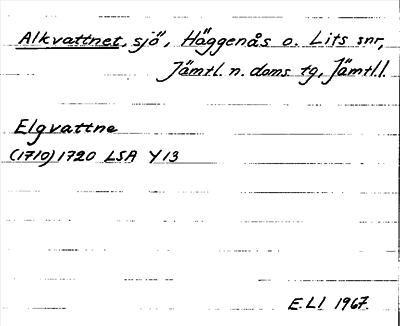 Alkvattnet, sjö, Häggenås o. Lits snr,
Jämtl. n. doms tg, Jämtl.l.
Elgvattne
(1710) 1720 LSA Y13
E.Ll 1967.